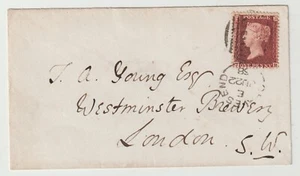 POSTAGE
ONE PENNY
J. A. Young Esq
Westminster Brewery
London. S.W.